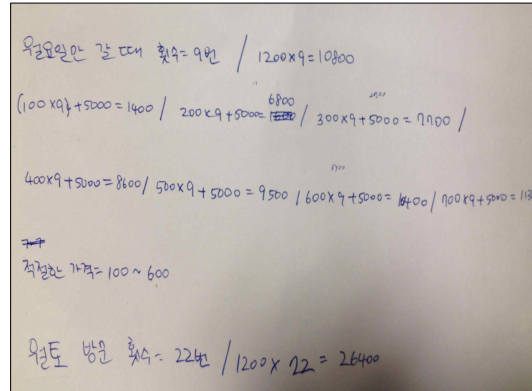 월요일만 갈 때 횟수=9번 / 1200×9=10800
(100×9)+5000=1400 / 200×9+5000=6800 / 300×9+5000=7700 /
400×9+5000=8600 / 500×9+5000=9500 / 600×9+5000=10400 / 700×9+5000=113
적절한 가격=100~600
월토 방문 횟수=22번 / 1200×22=26400